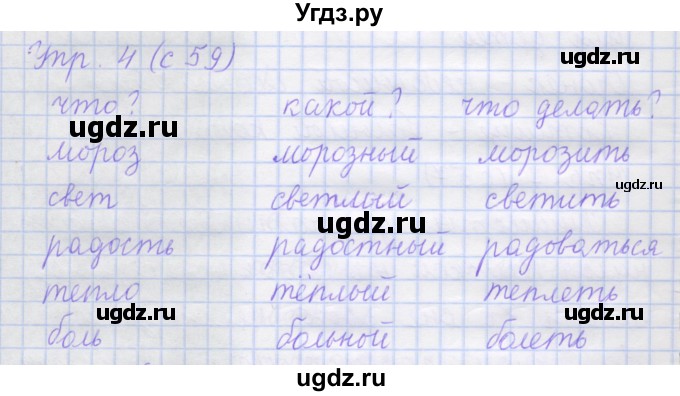 Угдз.ру
Упр. 4 (с 59)
ugdz.ru
что? какой? что делать?
ugdz.ru ugdz.ru
мороз морозный морозить
ugdz.ru
свет светлый светить
ugdz.ru
радость радостный радоваться
тепло тёплый теплеть
ugdz.ru ugdz.ru
боль больной болеть
ugdz.ru